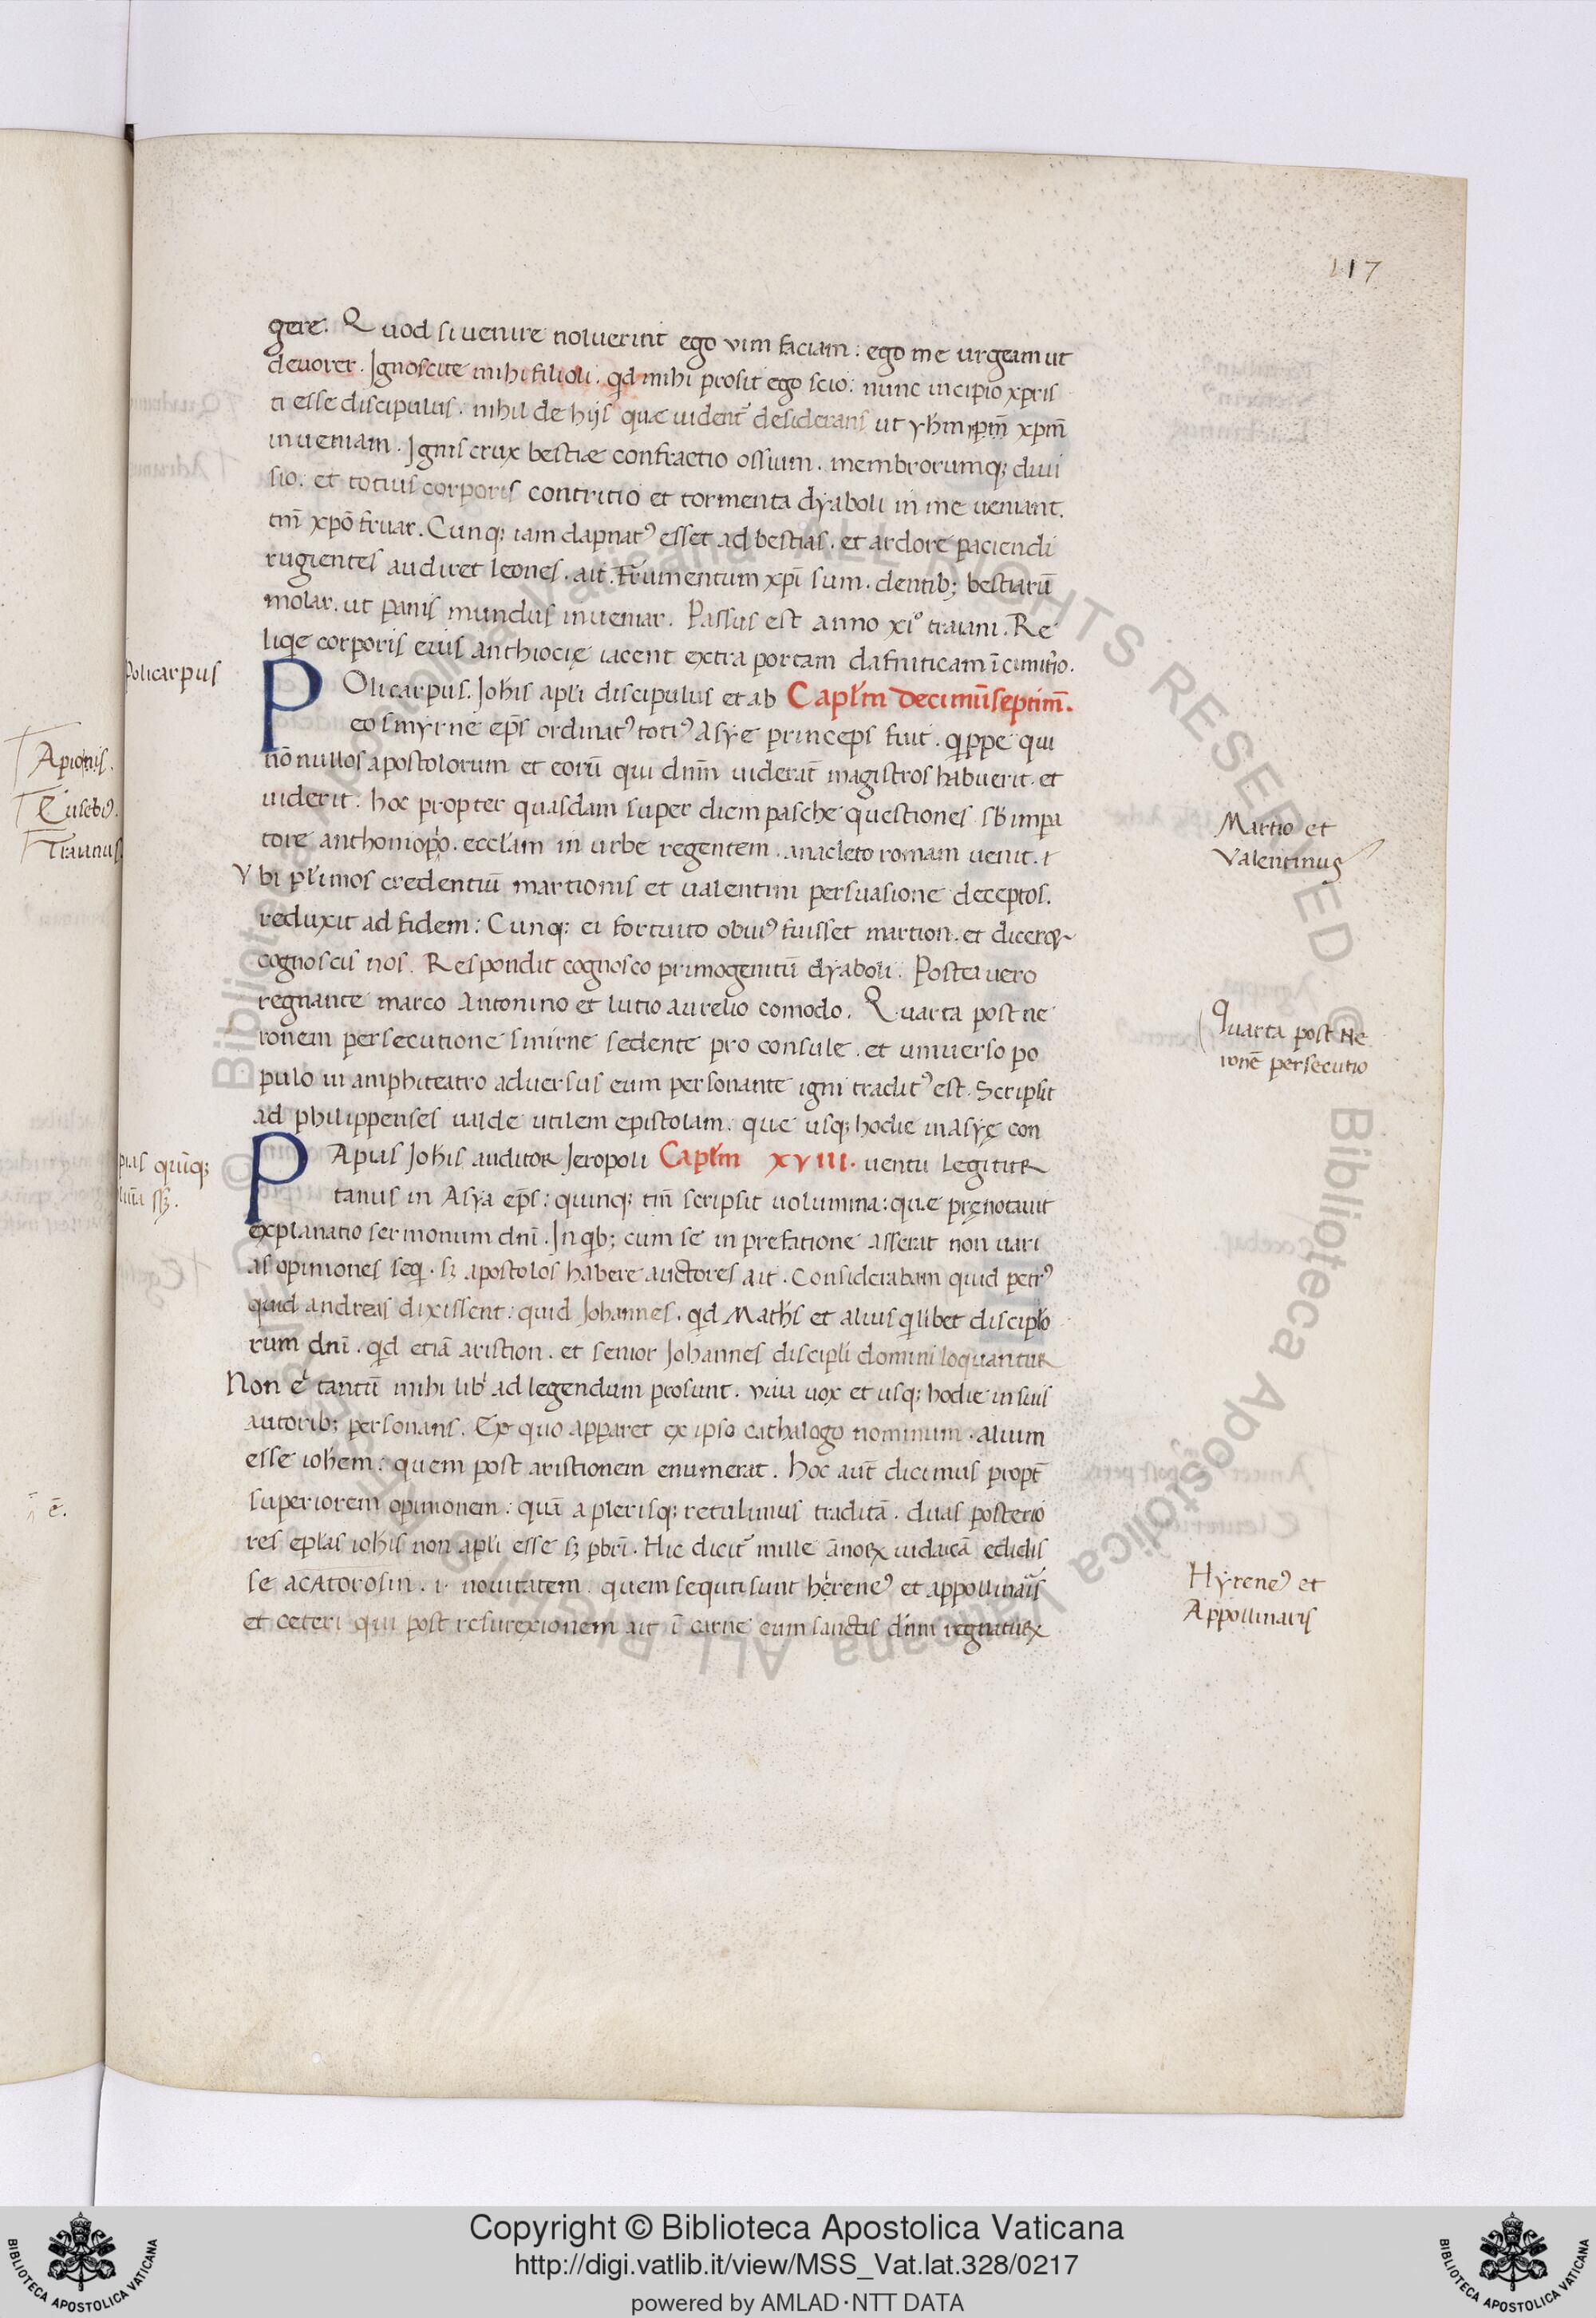 117
gere. Quod si uenire noluerint ego vim faciam: ego me urgeam ut
deuorer. Ignoscite mihi filioli. qd mihi prosit ego scio: nunc incipio xpris
ti esse discipulus. nihil de hijs quæ uident̃ desiderans ut yhm xpm̃
inueniam. Ignis crux bestiæ confractio ossium. membrorumq; diui
sio. et totius corporis contritio et tormenta dyaboli in me ueniant.
tm̃ xpõ fruar. Cunq; iam dapnatꝰ esset ad bestias. et ardore paciendi
rugientes audiret leones. ait. Frumentum xpĩ sum. dentib; bestiarũ
molar. ut panis mundus inueniar. Passus est anno xiº traiani. Re
liqe corporis eius anthiocię iacent extra portam dafniticam ĩ cimit̃io.
Policarpus
POlicarpus. Johis apli discipulus et ab Caplm decimũseptim̃.
eo smyrne ep̃s ordinatꝰ totiꝰ Asye princeps fuit. qppe qui
nõnullos apostolorum et eorũ qui dnm̃ uiderãt magistros habuerit. et
uiderit. hoc propter quasdam super diem pasche questiones sb impa
tore anthoniopo. eccl̃am in urbe regentem. anacleto romam uenit. t
Vbi pl̃imos credentiũ martionis et ualentini persuasione deceptos.
reduxit ad fidem: Cunq; ei fortuito obuiꝰ fuisset martion. et dicerꝗ
cognoscis nos. Respondit cognosco primogenitũ dyaboli. Postea uero
regnante marco Antonino et lutio aurelio comodo. Quarta post ne
ronem persecutione smirne sedente pro consule. et uniuerso po
pulo in amphiteatro aduersus eum personante igni traditꝰ est. Scripsit
ad philippenses ualde utilem epistolam. que usq; hodie in asyę con
PApias Johis auditor Jeropoli Caplm xviii. uentu legitur
tanus in Asya ep̃s: quinq; tm̃ scripsit uolumina: quæ prenotauit
explanatio sermonum dnĩ. In qb; cum se in prefatione asserat non uari
as opiniones seq. sꝫ apostolos habere auctores ait. Considerabam quid petrꝰ
quid andreas dixissent: quid Johannes. qd Maths et alius qlibet disciplo
rum dnĩ. qd etiã aristion. et senior Johannes discipli domini loquantur
Non ẽ tantũ mihi lib ad legendum prosunt. viua uox et usq; hodie in suis
autorib; personans. Ex quo apparet ex ipso cathalogo nominum. alium
esse iohem: quem post aristionem enumerat. hoc aut̃ dicimus propt̃
superiorem opinionem: quã a plerisq; retulimus traditã. duas posterio
res eplas iohis non apli esse sꝫ pbrĩ. Hic dicit̃ mille ãnoꝝ iudaicã edidis
se acatorosin. i. nouitatem. quem sequti sunt hereneꝰ et appollinaris
et ceteri qui post resurexionem ait ĩ carne cum sanctis dnm regnatuꝝ
Apionis.
Eusebiꝰ.
Traianus
pias quinq;
Martio et
Valentinus
Quarta post Ne
ronẽ persecutio
Hyreneꝰ et
Appollinaris
Copyright © Biblioteca Apostolica Vaticana
http://digi.vatlib.it/view/MSS_Vat.lat.328/0217
powered by AMLAD·NTT DATA
BIBLIOTECA APOSTOLICA VATICANA
BIBLIOTECA APOSTOLICA VATICANA